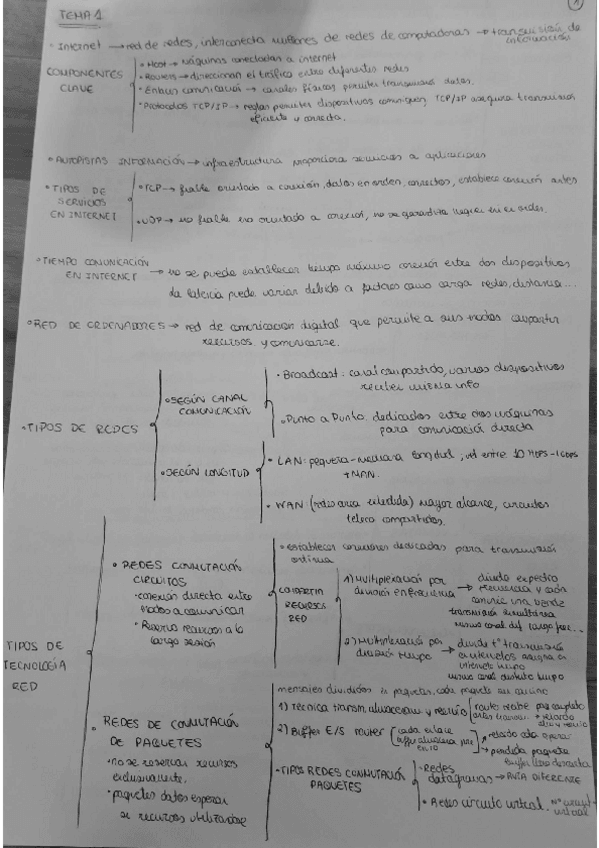 TEMA 1
1
· Internet → red de redes, interconecta millones de redes de computadoras → transmisión de información
COMPONENTES CLAVE
· Host → máquinas conectadas a internet
· Routers → direccionan el tráfico entre diferentes redes
· Enlaces comunicación → canales físicos permiten transmisión datos.
· Protocolos TCP/IP → reglas permiten dispositivos comuniquen, TCP/IP asegura transmisión
eficiente y correcta.
· AUTOPISTAS INFORMACIÓN → infraestructura proporciona servicios a aplicaciones
· TIPOS DE SERVICIOS EN INTERNET
· TCP → fiable orientado a conexión, datos en orden, correctos, establece conexión antes
· UDP → no fiable no orientado a conexión, no se garantiza llegar en orden.
· TIEMPO COMUNICACIÓN EN INTERNET → no se puede establecer tiempo máximo conexión entre dos dispositivos
la latencia puede variar debido a factores como carga redes, distancia...
· RED DE ORDENADORES → red de comunicación digital que permite a sus nodos compartir
recursos y comunicarse.
· TIPOS DE REDES
· SEGÚN CANAL COMUNICACIÓN
· Broadcast: canal compartido, varios dispositivos
reciben misma info
· Punto a Punto: dedicados entre dos máquinas
para comunicación directa
· SEGÚN LONGITUD
· LAN: pequeña-mediana longitud, vel entre 10 Mbps-1Gbps
+ MAN.
· WAN: (redes area extendida) mayor alcance, circuitos
teleco compartidos.
TIPOS DE TECNOLOGÍA RED
· REDES CONMUTACIÓN CIRCUITOS
· conexión directa entre
nodos a comunicar
· Reserva recursos a lo
largo sesión
· establecer conexiones dedicadas para transmisión
continua
COMPARTIR RECURSOS RED
1) Multiplexación por división en frecuencia → divide espectro
frecuencia y cada
conexión una banda
transmisión simultánea
mismo canal dif. rango frec...
2) Multiplexación por división tiempo → divide tº transmisión
en intervalos asigna en
intervalo tiempo
mismo canal distinto tiempo
· REDES DE CONMUTACIÓN DE PAQUETES
· no se reservan recursos
exclusivamente.
· paquetes datos esperan
si recursos utilizándose
mensajes divididos en paquetes, cada paquete su camino
1) Técnica transm. almacenam. y reenvío
router recibe paq completo
antes transmi. → retardo
alm y reenvío
2) Buffer E/S router
cada enlace
buffer almacena paq
→ retardo cola espera
→ perdida paquete
buffer lleno descarta
· TIPOS REDES CONMUTACIÓN PAQUETES
· Redes
datagramas → RUTA DIFERENTE
· Redes circuito virtual. Nº circuit
virtual